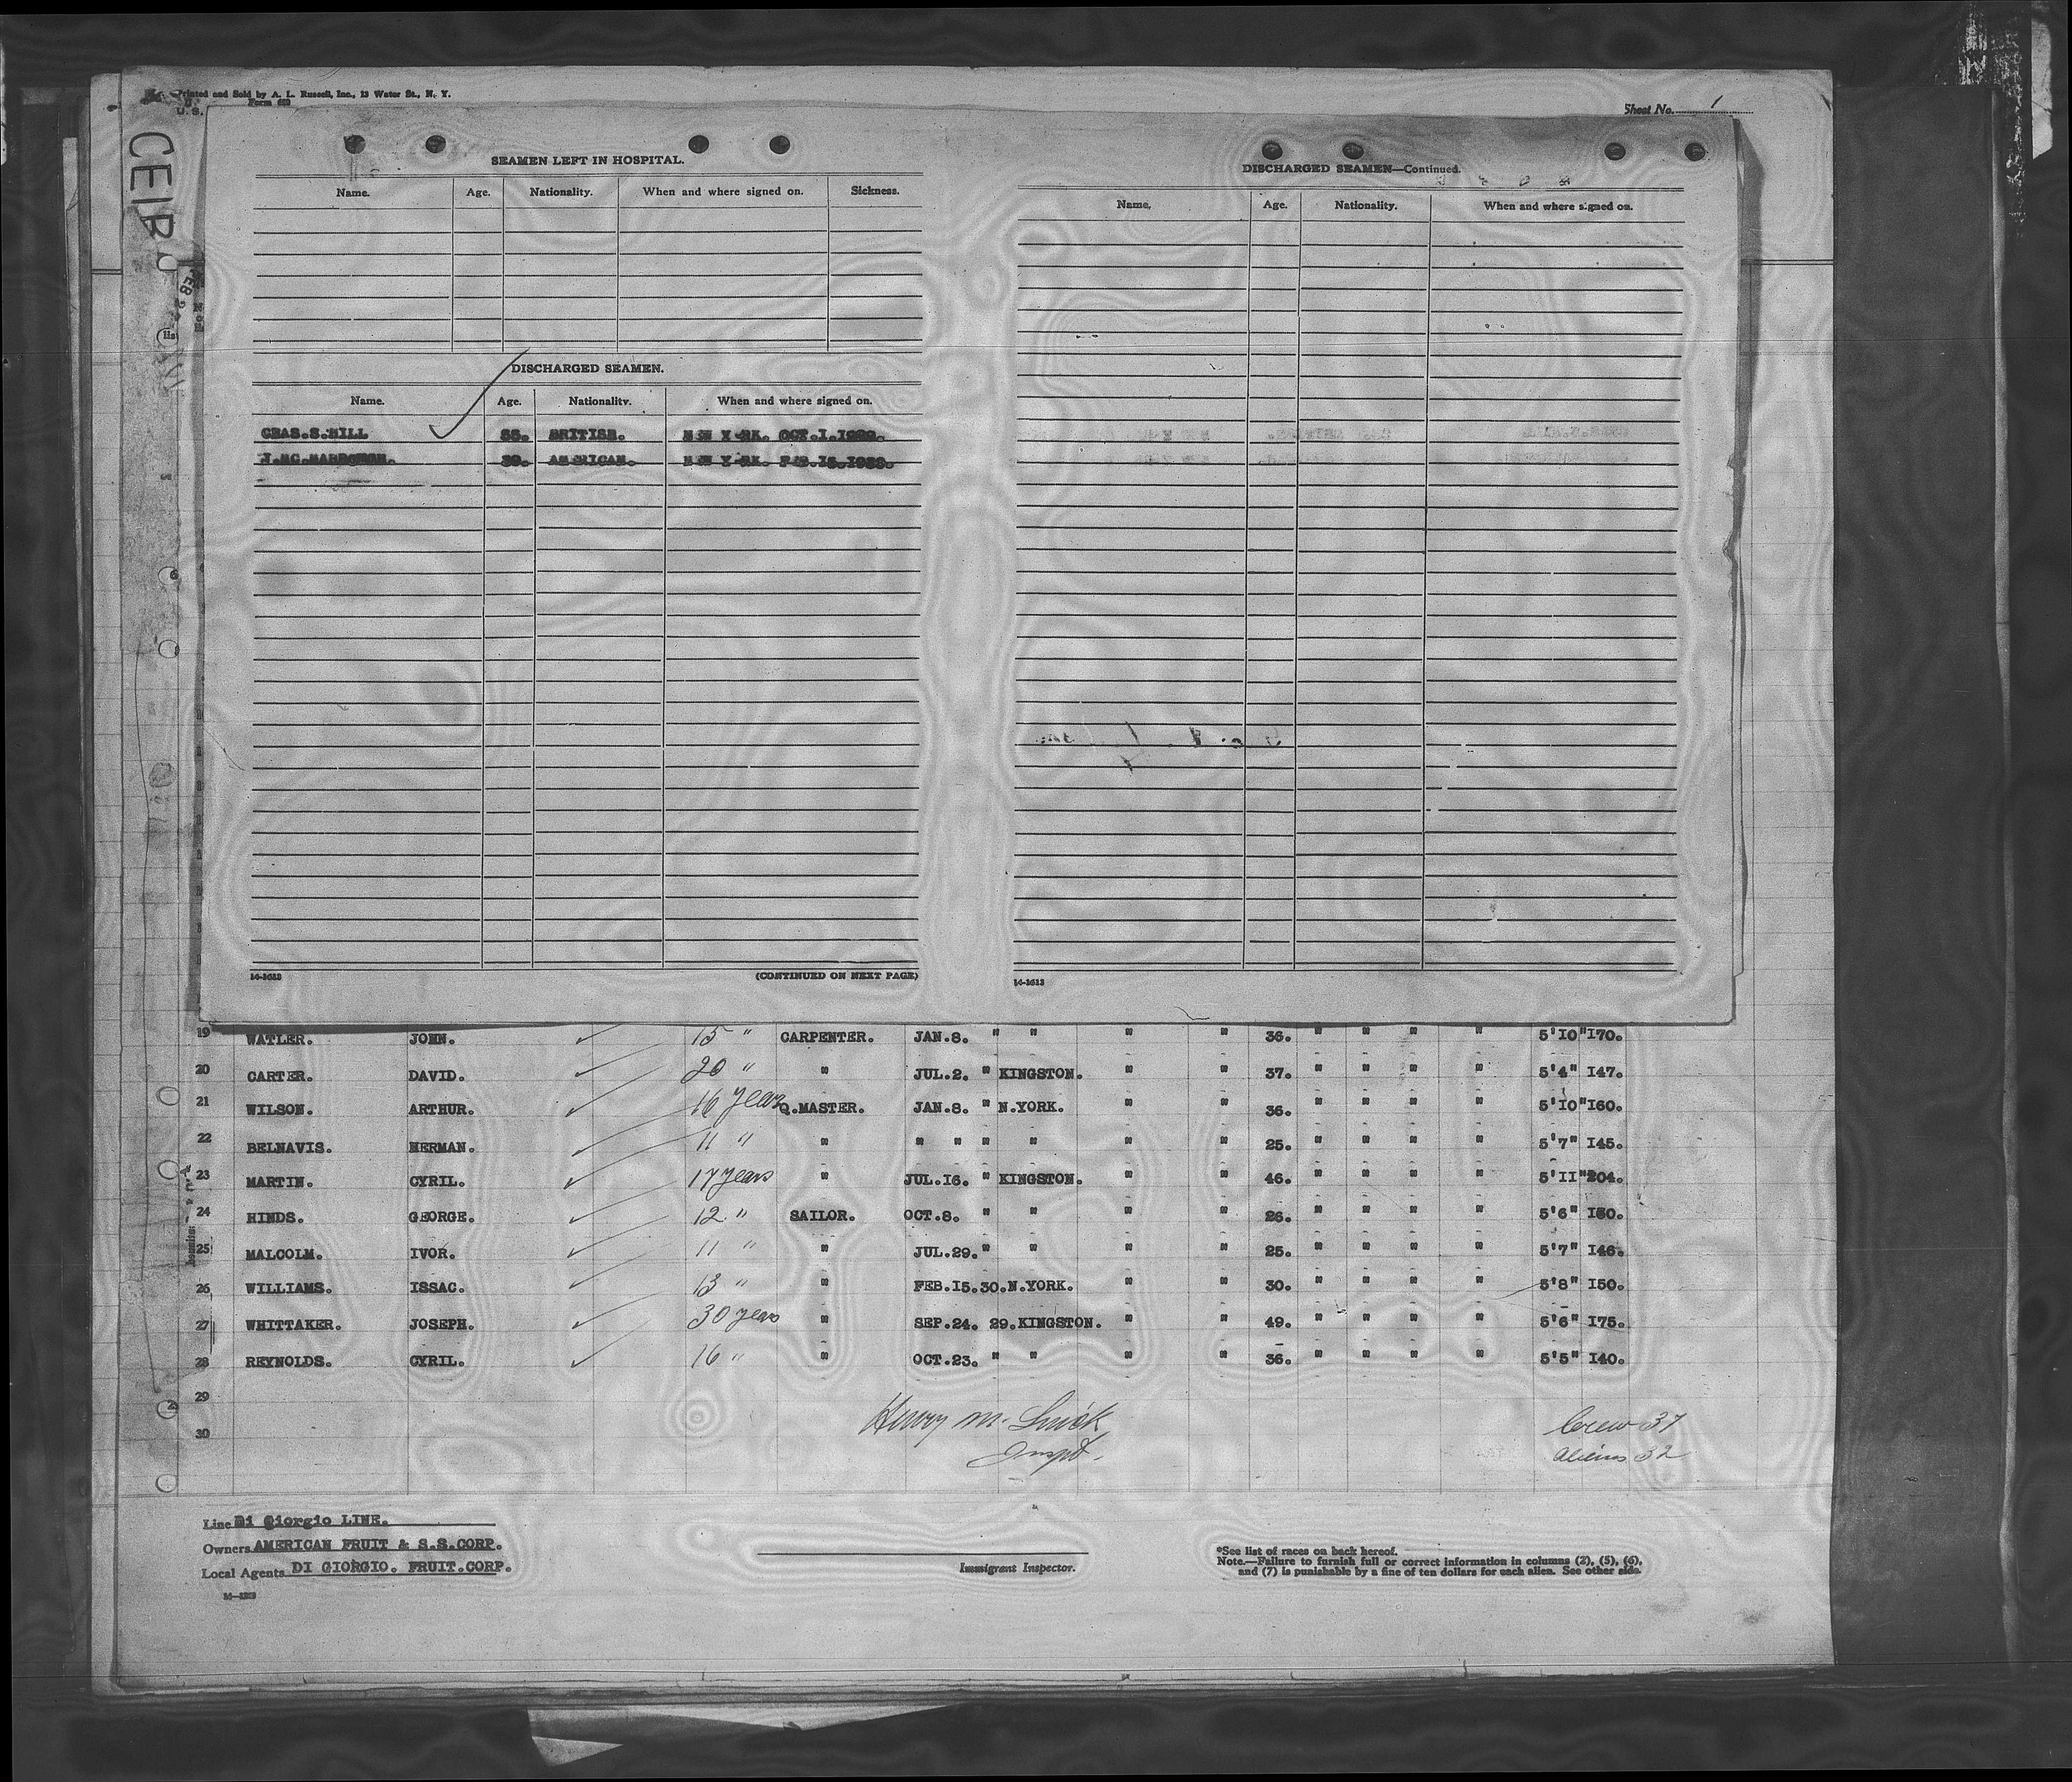 Printed and Sold by A. L. Russell, Inc., 13 Water St., N. Y.
Form 689
U. S.
Sheet No. 1
CEIB
FEB 2
SEAMEN LEFT IN HOSPITAL.
Name. Age. Nationality. When and where signed on. Sickness.
DISCHARGED SEAMEN.
Name. Age. Nationality. When and where signed on.
CHAS.S.HILL BRITISH. NEW YORK. OCT.I.1929.
AMERICAN. NEW YORK. FEB.15.1930.
14-1613 (CONTINUED ON NEXT PAGE)
DISCHARGED SEAMEN—Continued.
Name. Age. Nationality. When and where signed on.
14-1613
19 WATLER. JOHN. 15 " CARPENTER. JAN.8. " " " " 36. " " " " 5'10" 170.
20 CARTER. DAVID. 20 " " JUL.2. " KINGSTON. " " 37. " " " " 5'4" 147.
21 WILSON. ARTHUR. 16 years Q.MASTER. JAN.8. " N.YORK. " " 36. " " " " 5'10" 160.
22 BELNAVIS. HERMAN. 11 " " " " " " " " 25. " " " " 5'7" 145.
23 MARTIN. CYRIL. 17 years " JUL.16. " KINGSTON. " " 46. " " " " 5'11" 204.
24 HINDS. GEORGE. 12 " SAILOR. OCT.8. " " " " 26. " " " " 5'6" 150.
25 MALCOLM. IVOR. 11 " " JUL.29. " " " " 25. " " " " 5'7" 146.
26 WILLIAMS. ISSAC. 13 " " FEB.15.30.N.YORK. " " 30. " " " " 5'8" 150.
27 WHITTAKER. JOSEPH. 30 years " SEP.24. 29.KINGSTON. " " 49. " " " " 5'6" 175.
28 REYNOLDS. CYRIL. 16 " " OCT.23. " " " " 36. " " " " 5'5" 140.
29
30
Henry M.
Inspt.
Crew 37
Aliens 32
Line Di Giorgio LINE.
Owners AMERICAN FRUIT & S.S.CORP.
Local Agents DI GIORGIO. FRUIT.CORP.
Immigrant Inspector.
*See list of races on back hereof.
Note.—Failure to furnish full or correct information in columns (2), (5), (6),
and (7) is punishable by a fine of ten dollars for each alien. See other side.